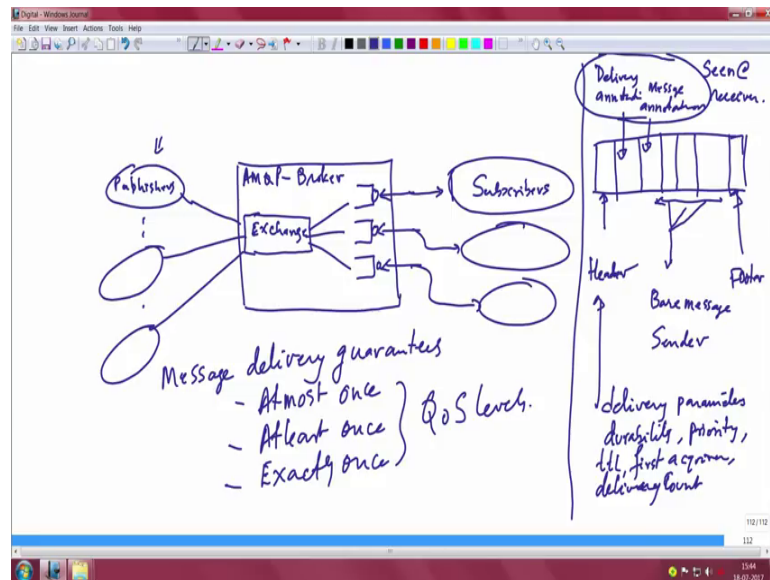 Digital - Windows Journal
File Edit View Insert Actions Tools Help
Publishers
AMQP-Broker
Exchange
Subscribers
Message delivery guarantees
- Atmost once
- Atleast once
- Exactly once
QoS levels.
Delivery
Message
annotation
Seen@
receiver.
Header
Footer
Bare message
Sender
delivery parameters
durability, priority,
ttl, first acquirer,
delivery count
112/112
112
15:44
18-07-2017